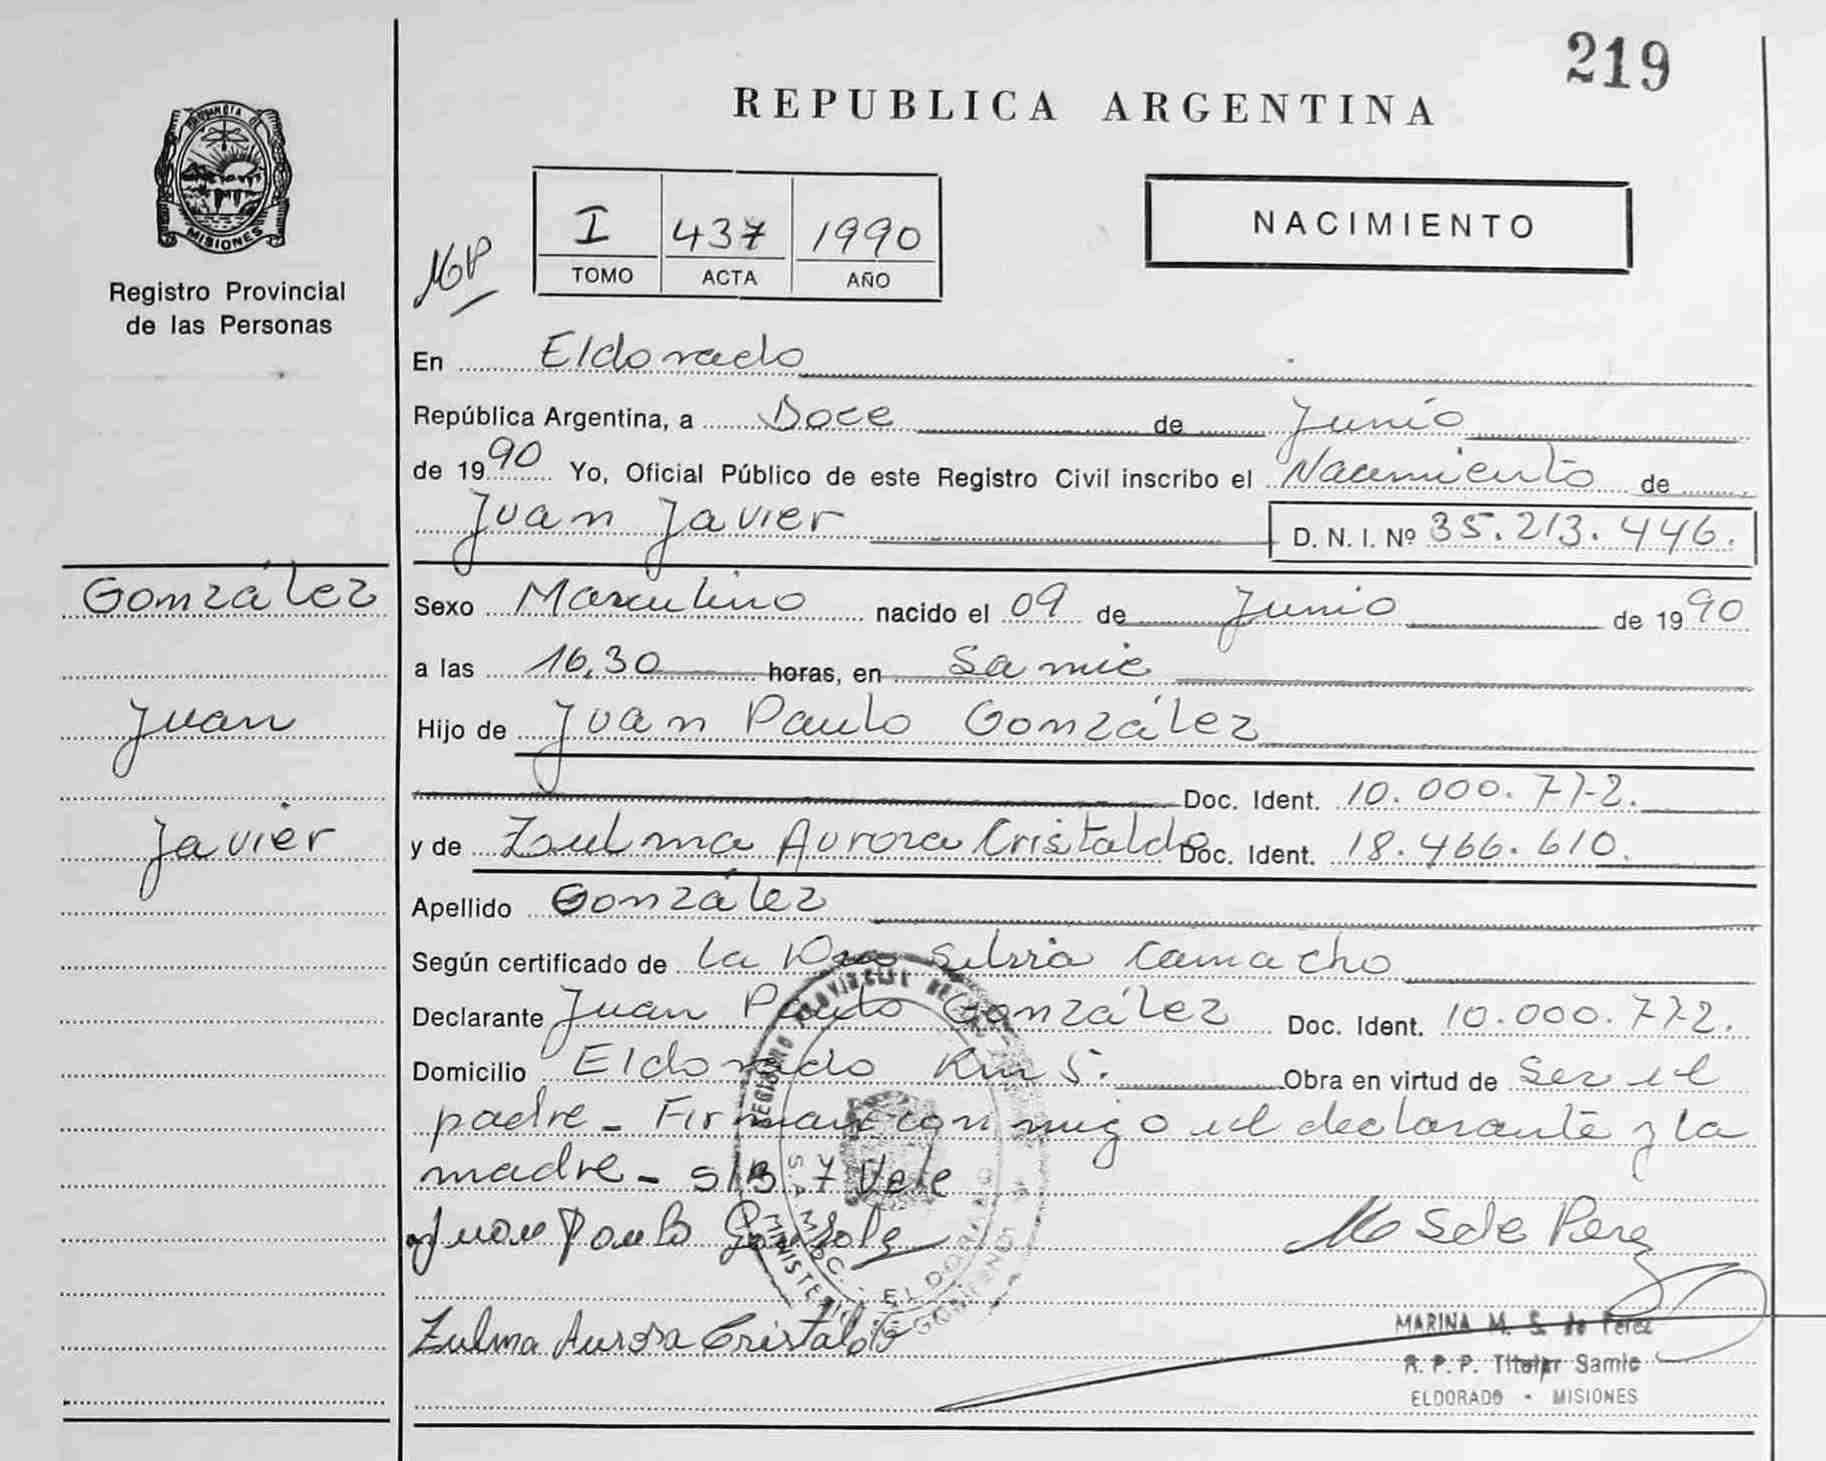 219
REPUBLICA ARGENTINA
PROVINCIA DE
MISIONES
Registro Provincial
de las Personas
I 437 1990
TOMO ACTA AÑO
NACIMIENTO
En Eldorado
República Argentina, a Doce de Junio
de 1990 Yo, Oficial Público de este Registro Civil inscribo el Nacimiento de
Juan Javier D. N. I. Nº 35.213.446.
González
Sexo Masculino nacido el 09 de Junio de 1990
a las 16,30 horas, en Samic
Juan
Hijo de Juan Paulo González
Doc. Ident. 10.000.772.
Javier
y de Zulma Aurora Cristaldo Doc. Ident. 18.466.610.
Apellido González
Según certificado de La Dra Silvia Camacho
Declarante Juan Paulo González Doc. Ident. 10.000.772.
Domicilio Eldorado Km 5. Obra en virtud de Ser el
padre - Firman conmigo el declarante y la
madre - S/B. 7 Vale
Juan Paulo Gonzalez
M S de Perez
Zulma Aurora Cristaldo
MARINA M. S. de Perez
R. P. P. Titular Samic
ELDORADO - MISIONES
REGISTRO PROVINCIAL DE LAS
ELDORADO
MINISTERIO DE GOBIERNO